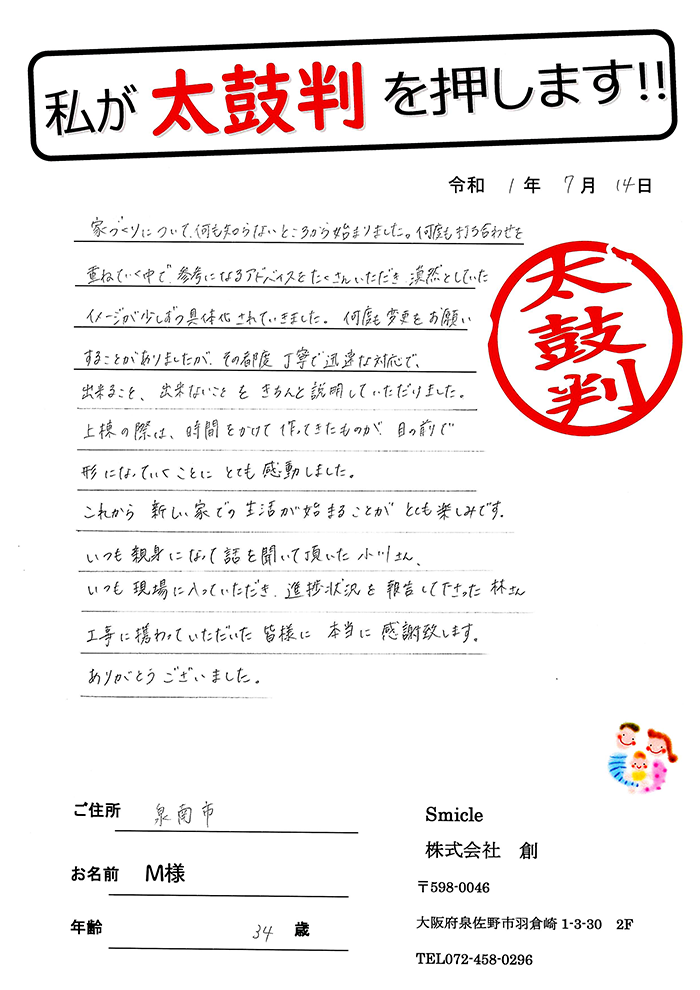 私が 太鼓判 を押します!!
令和 1 年 7 月 14 日
家づくりについて、何も知らないところから始まりました。何度も打ち合わせを
重ねていく中で、参考になるアドバイスをたくさんいただき、漠然としていた
イメージが少しずつ具体化されていきました。何度も変更をお願い
することがありましたが、その都度、丁寧で迅速な対応で、
出来ること、出来ないことをきちんと説明していただけました。
上棟の際は、時間をかけて作ってきたものが、目の前で
形になっていくことにとても感動しました。
これから 新しい家での生活が始まることがとても楽しみです。
いつも親身になって話を聞いて頂いた小川さん、
いつも現場に入っていただき、進捗状況を報告して下さった林さん
工事に携わっていただいた皆様に 本当に感謝致します。
ありがとうございました。
太鼓判
ご住所 泉南市
お名前 M様
年齢 34 歳
Smicle
株式会社 創
〒598-0046
大阪府泉佐野市羽倉崎 1-3-30 2F
TEL072-458-0296